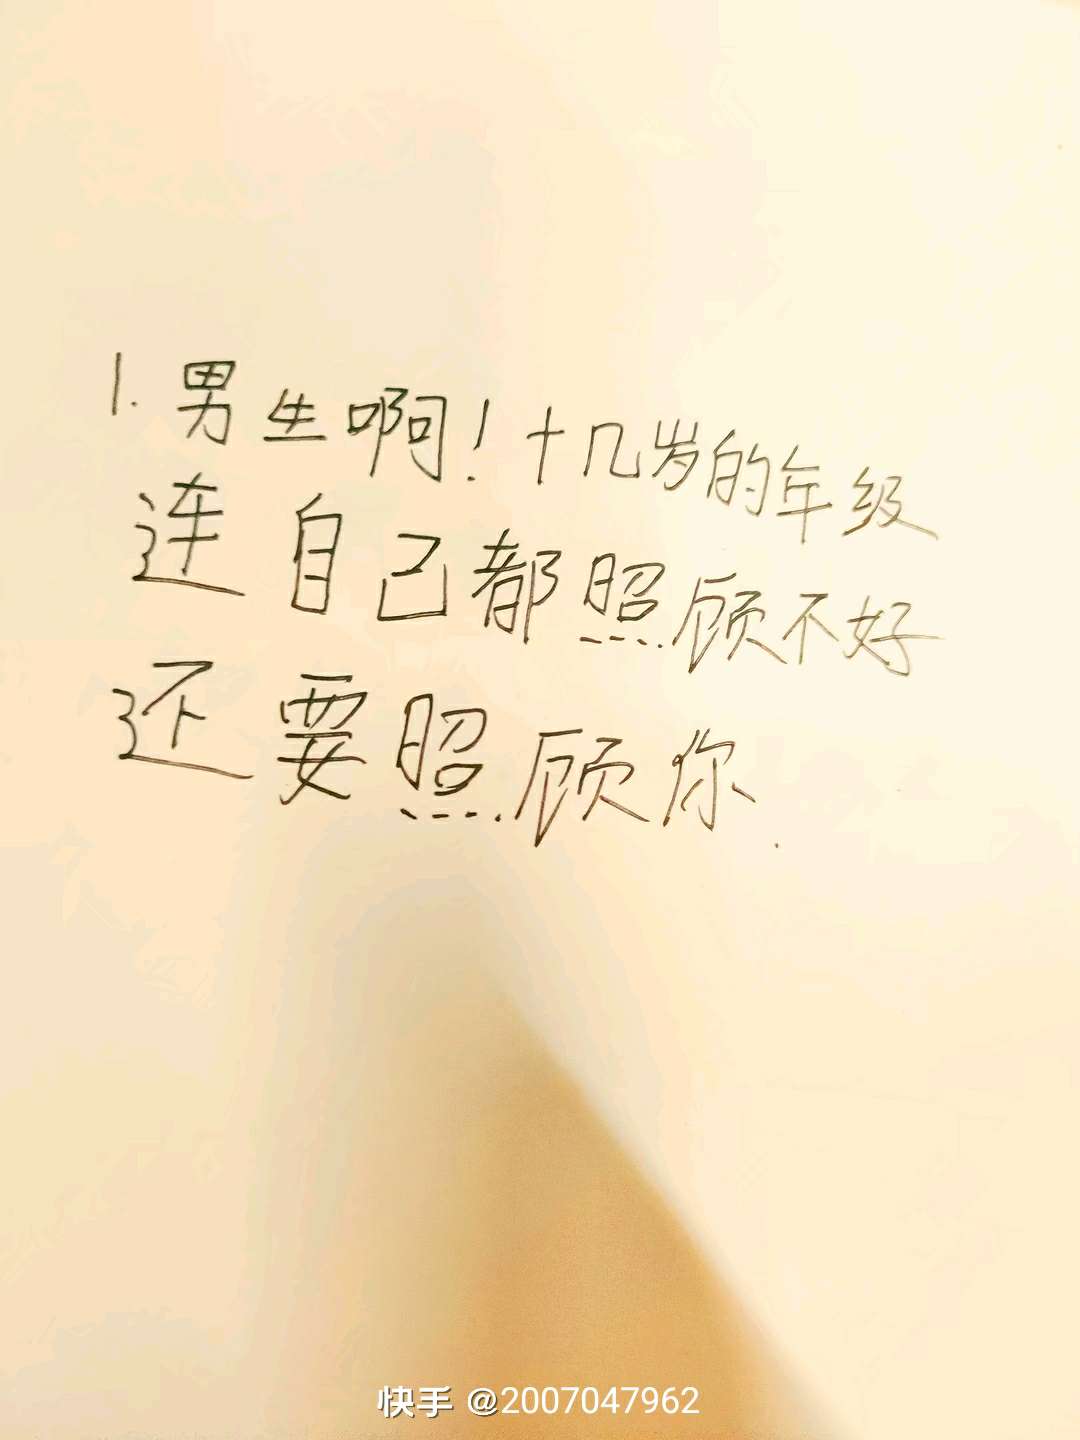 1. 男生啊！十几岁的年级
连自己都照顾不好
还要照顾你.
快手 @2007047962